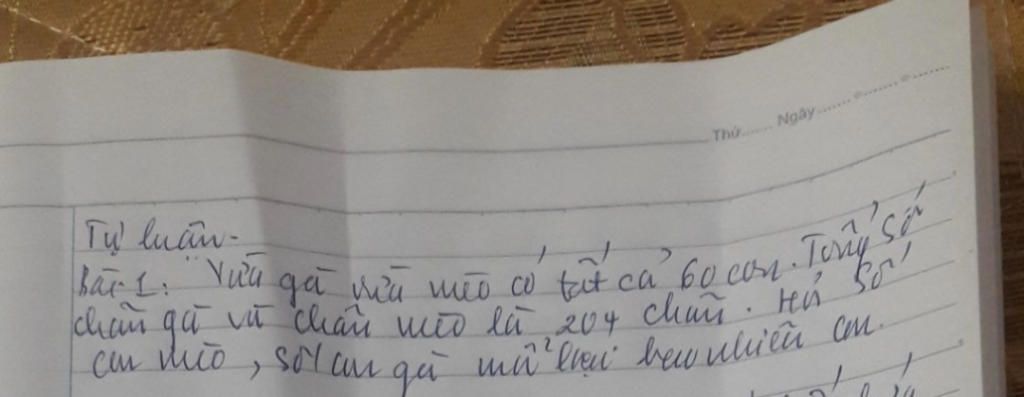 Thứ....... Ngày....... - ....... - .......
Tự luận.
Bài 1: Vừa gà vừa mèo có tất cả 60 con. Tổng số
chân gà và chân mèo là 204 chân. Hỏi số
con mèo, số con gà mỗi loại bao nhiêu con.